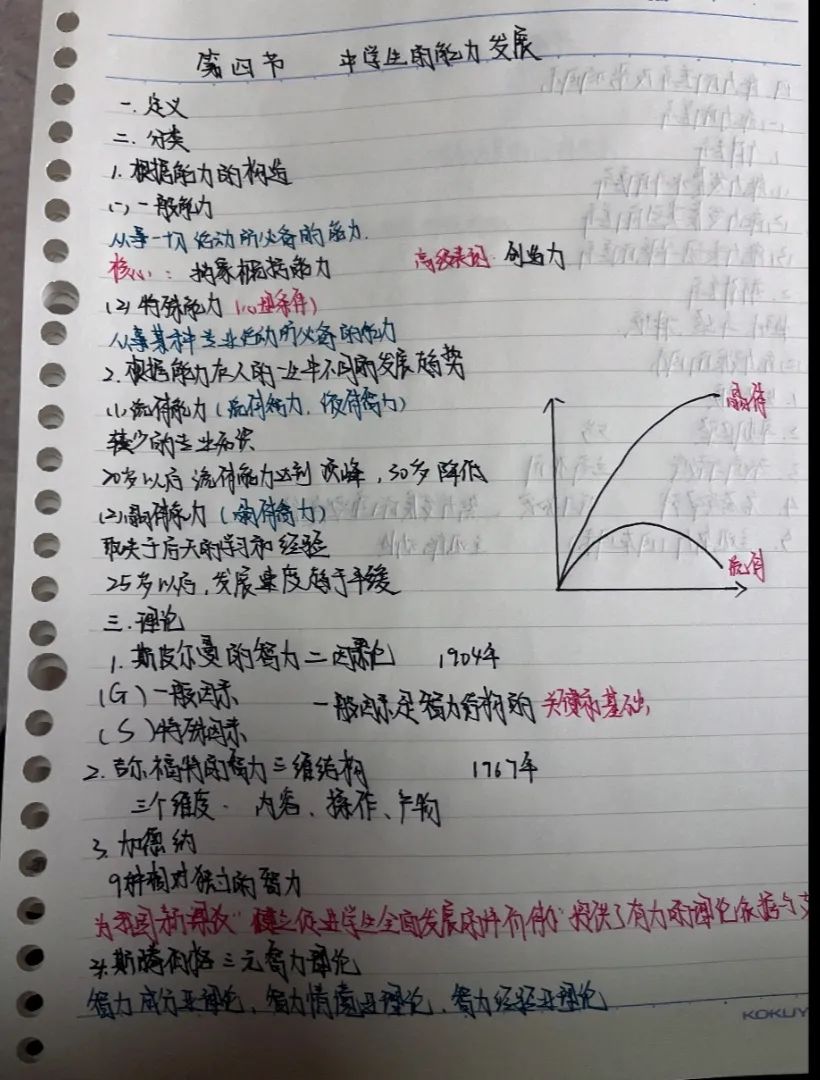 第四节 中学生的能力发展
一.定义
二.分类
1.根据能力的构造
(1)一般能力
从事一切活动所必备的能力.
核心:抽象概括能力 高级表现:创造力
(2)特殊能力(心理条件)
从事某种专业活动所必备的能力
2.根据能力在人的一生中不同的发展趋势
(1)流体能力(流体智力、液体智力)
较少的专业知识
20岁以后流体能力达到顶峰,30岁降低
(2)晶体能力(晶体智力)
取决于后天的学习和经验
25岁以后,发展速度趋于平缓
晶体
流体
三.理论
1.斯皮尔曼的智力二因素论 1904年
(G)一般因素 一般因素是智力结构的关键和基础
(S)特殊因素
2.吉尔福特的智力三维结构 1967年
三个维度.内容、操作、产物
3.加德纳
9种相对独立的智力
为我国新课改"建立促进学生全面发展的评价体系"提供了有力的理论依据与支
4.斯腾伯格三元智力理论
智力成分亚理论、智力情境亚理论、智力经验亚理论
KOKUY